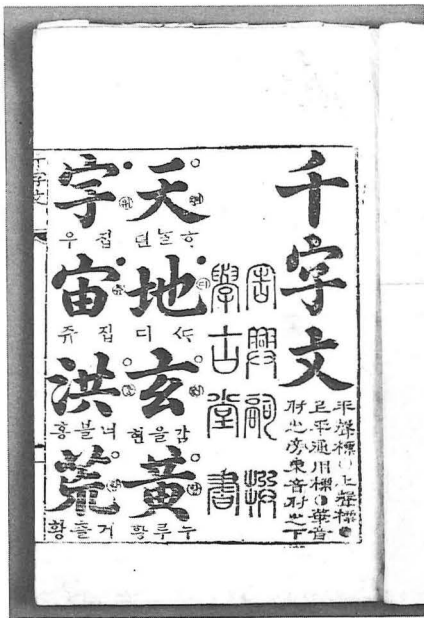 千字文
平聲標○上聲標●
上平通用標◑華音
附之旁東音附之下
周興嗣撰
學古堂書
天
하늘텬
地
ᄯᅡ디
玄
감을현
黃
누루황
宇
집우
宙
집쥬
洪
너블홍
荒
거츨황
千字文